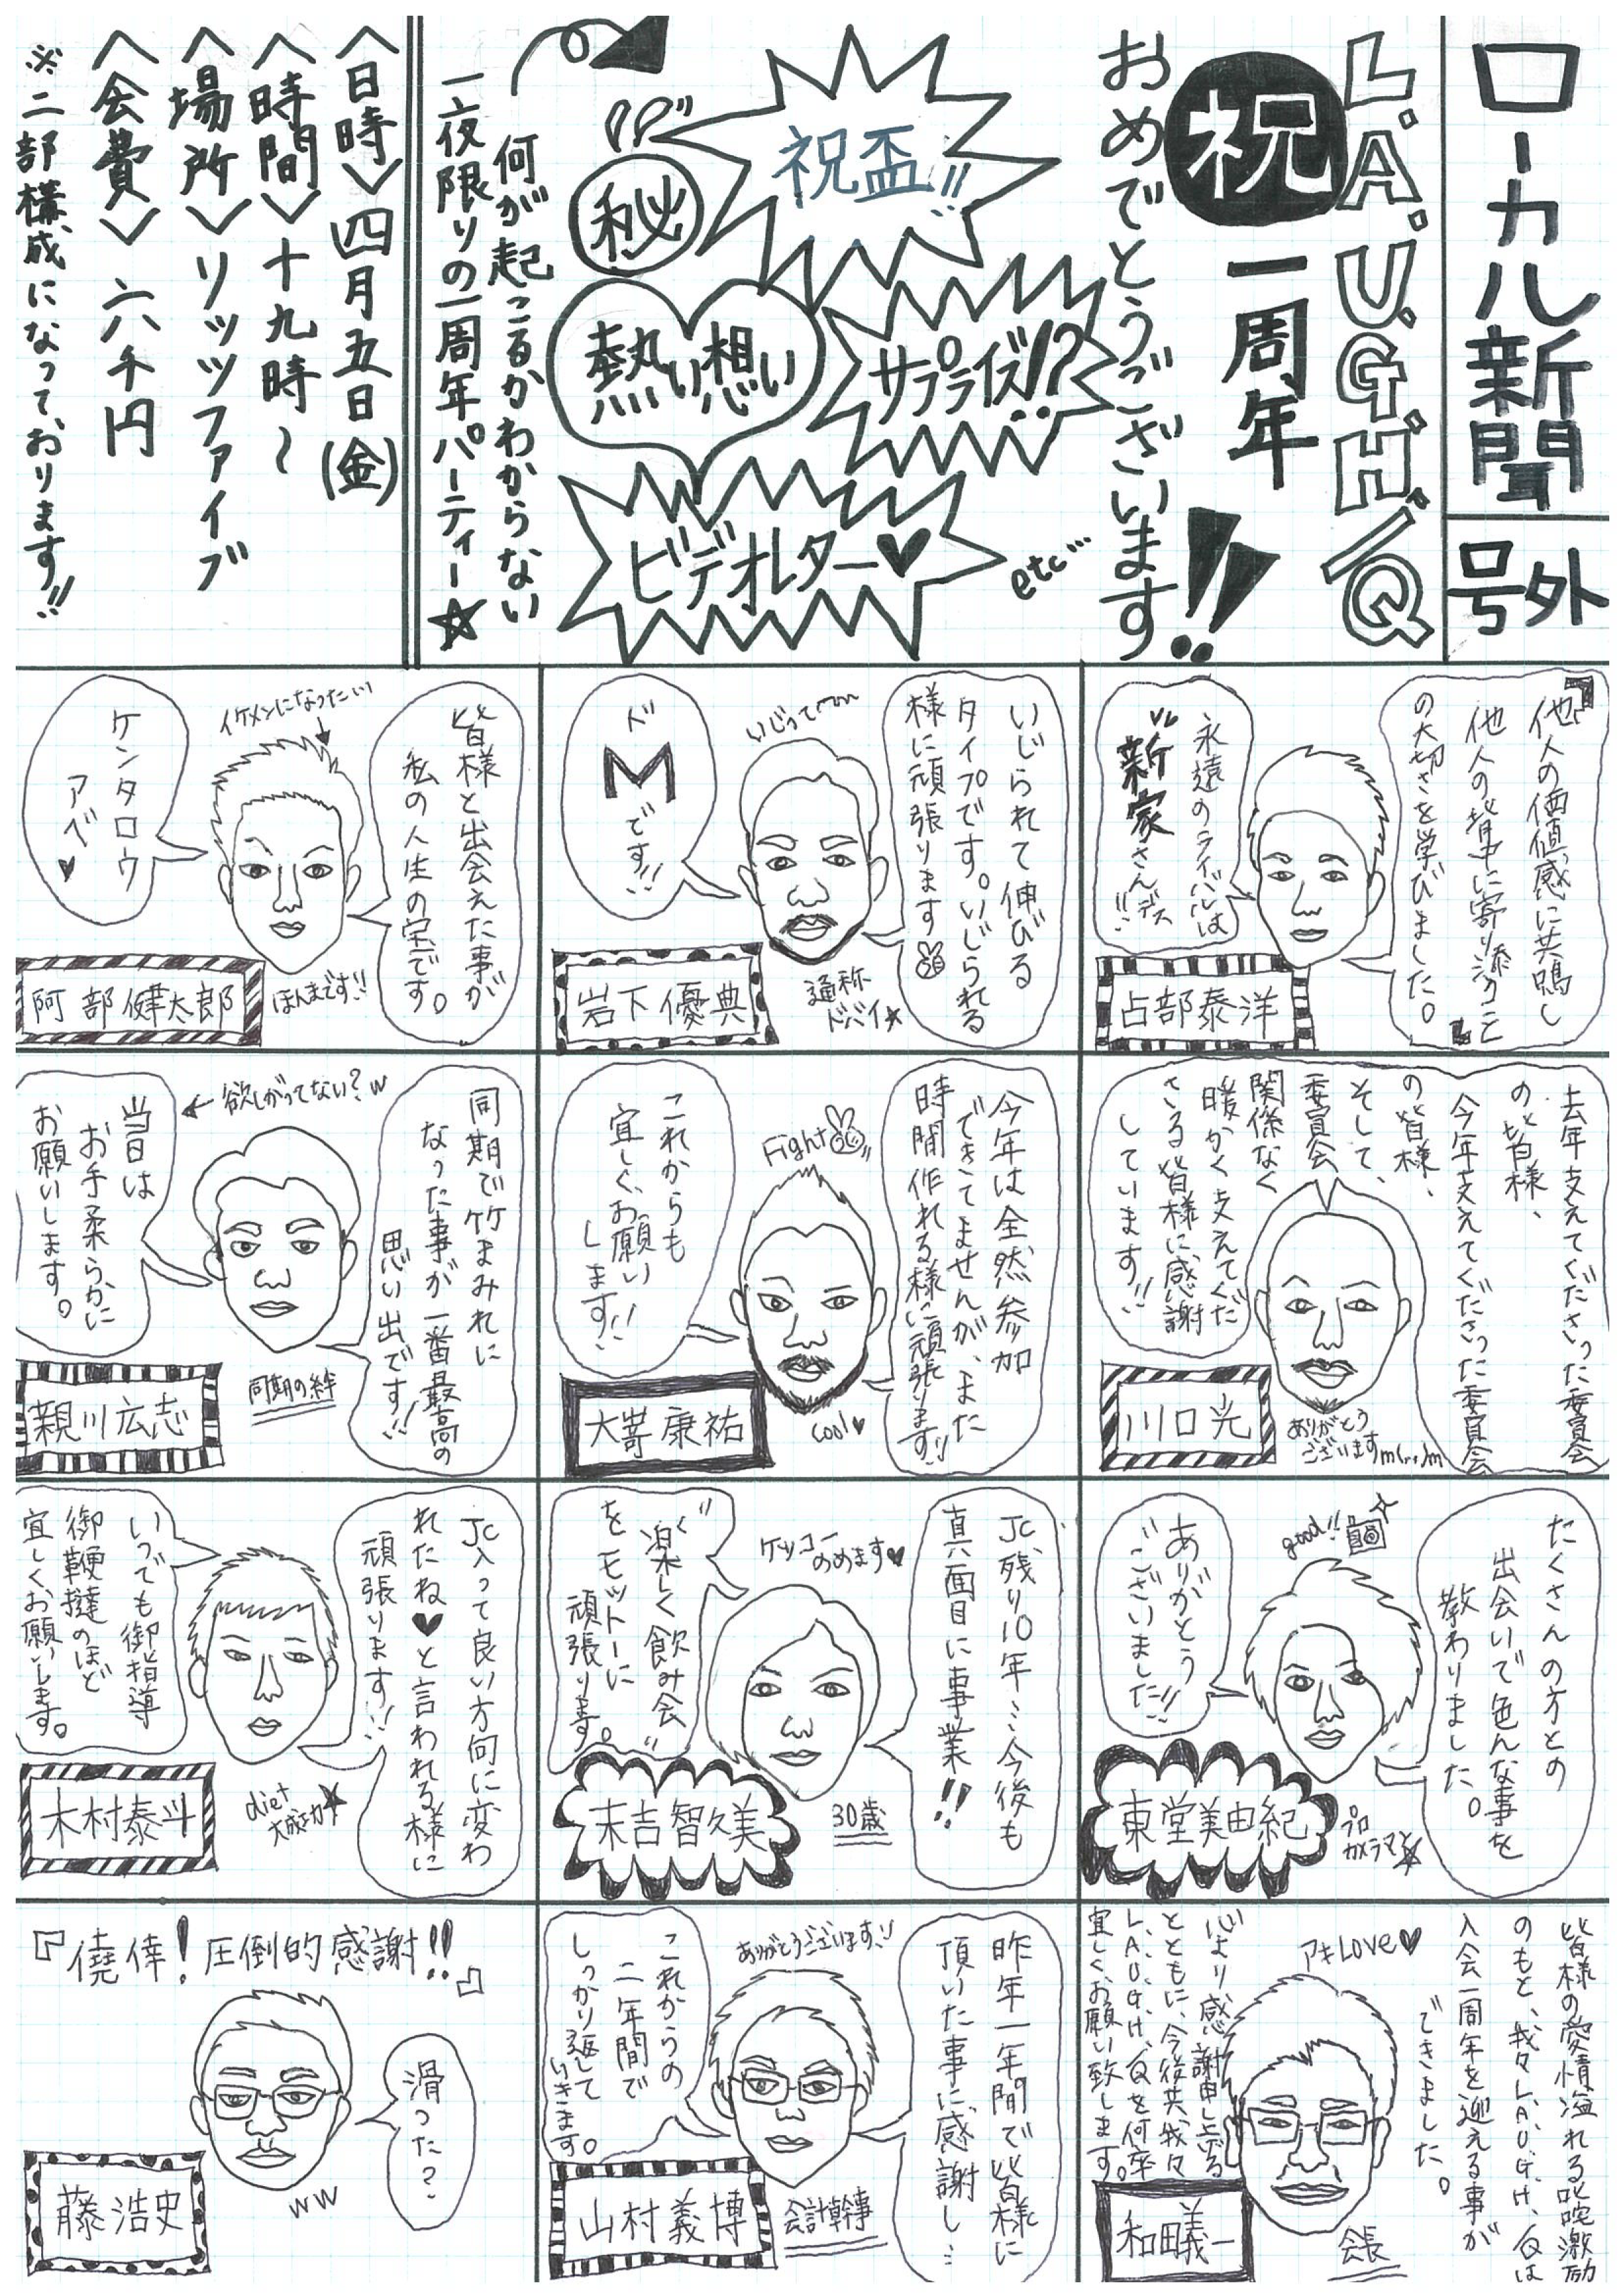 ローカル新聞
号外
L.A.U.G.H./Q
祝
一周年!!
おめでとうございます
祝盃!!
サプライズ!?
ビデオレター♥
etc…
㊙
熱い想い
何が起こるかわからない
一夜限りの一周年パーティー☆
〈日時〉四月五日(金)
〈時間〉十九時〜
〈場所〉リッツファイブ
〈会費〉六千円
※二部構成になっております!!
「他人の価値感に共鳴し
他人の背中に寄り添うこと」
の大切さを学びました。
永遠のライバルは
新家さんデス!!
占部泰洋
いじられて伸びる
タイプです。いじられる
様に頑張ります
いじって〜
ド
M
です!!
通称
ドバイ☆
岩下優典
皆様と出会えた事が
私の人生の宝です。
イケメンになったい!
ケンタロウ
アベ♥
ほんまです!!
阿部健太郎
去年支えてくださった委員会
の皆様、
今年支えてくださった委員会
の皆様、
そして、
委員会
関係なく
暖かく支えてくだ
さる皆様に感謝
しています!!
ありがとう
ございますm(..)m
川口光
今年は全然参加
できてませんが、また
時間作れる様に頑張ります!!
Fight
これからも
宜しくお願い
します!!
cool♥
大嵜康祐
同期で竹まみれに
なった事が一番最高の
思い出です!!
←欲しがってない?w
当日は
お手柔らかに
お願いします。
同期の絆
親川広志
たくさんの方との
出会いで色んな事を
教わりました。
good!!
ありがとう
ございました!!
プロ
カメラマン☆
東堂美由紀
JC残り10年…今後も
真面目に事業!!
ケッコー
のめます♥
"楽しく飲み会"
をモットーに
頑張ります。
30歳
末吉智久美
JC入って良い方向に変わ
れたね♥と言われる様に
頑張ります!!
いつでも御指導
御鞭撻のほど
宜しくお願いします。
diet
大成功☆
木村泰斗
皆様の愛情溢れる叱咤激励
のもと、我々L.A.U.G.H./Qは
入会一周年を迎える事が
できました。
アキLOVE♡
心より感謝申し上げる
とともに、今後共、我々
L.A.U.G.H./Qを何卒
宜しくお願い致します。
会長
和田義一
昨年一年間で皆様に
頂いた事に感謝し…
ありがとうございます!!
これからの
二年間で
しっかり返して
いきます。
会計幹事
山村義博
『僥倖!圧倒的感謝!!』
滑った?
ww
藤浩史